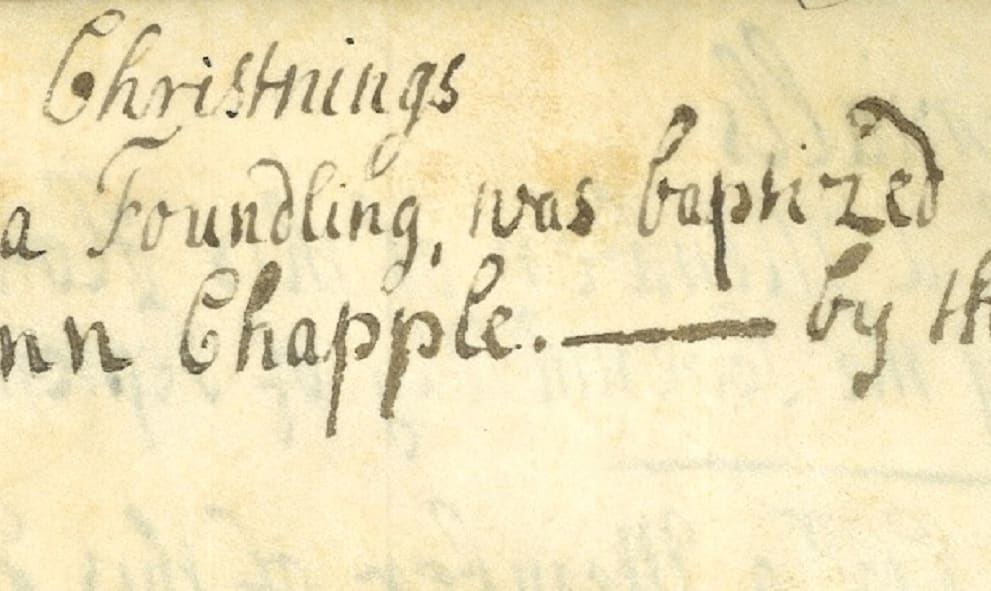 Christnings
a Foundling, was baptized
nn Chapple. — by th